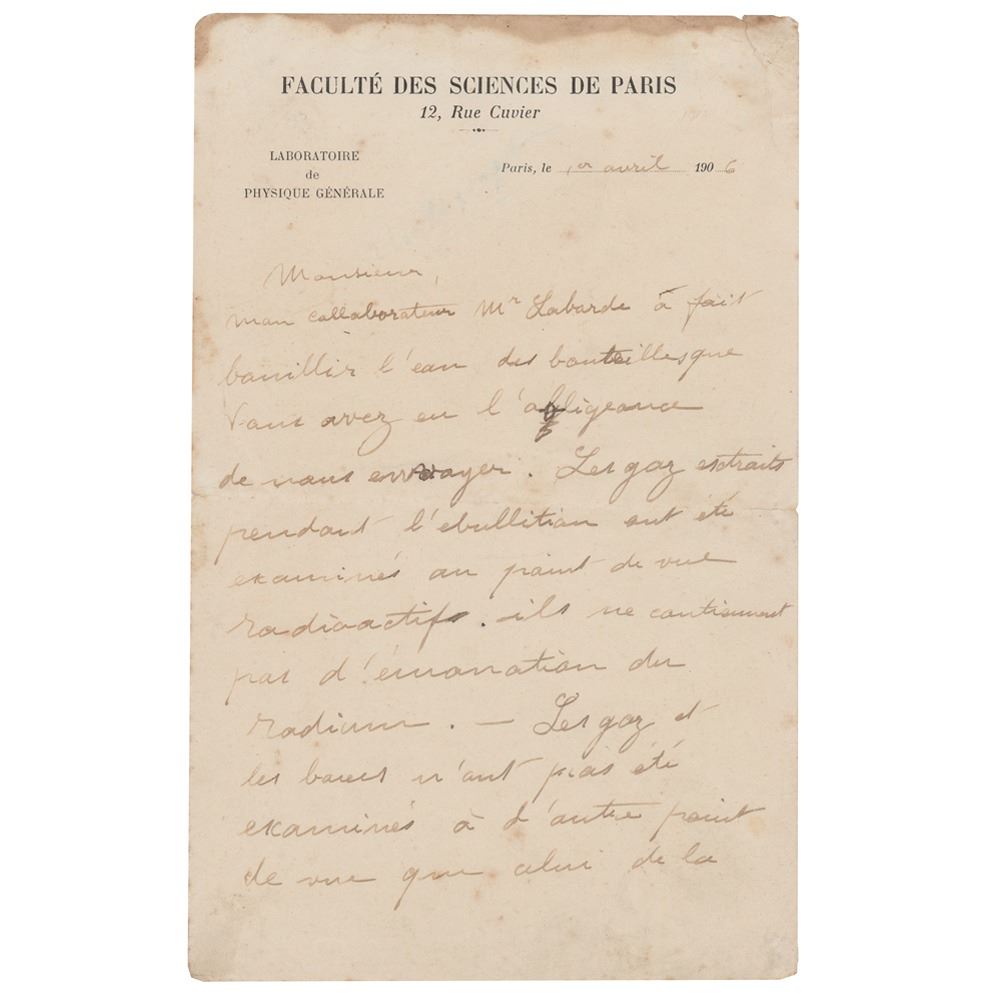 FACULTÉ DES SCIENCES DE PARIS
12, Rue Cuvier
LABORATOIRE
de
PHYSIQUE GÉNÉRALE
Paris, le 1er avril 1906
Monsieur,
mon collaborateur Mr Laborde a fait
bouillir l'eau des bouteilles que
Vous avez eu l'obligeance
de nous envoyer. Les gaz extraits
pendant l'ebullition ont été
examinés au point de vue
radioactifs. ils ne contiennent
pas d'émanation du
radium. — Les gaz et
les boues n'ont pas été
examinés à d'autre point
de vue que celui de la